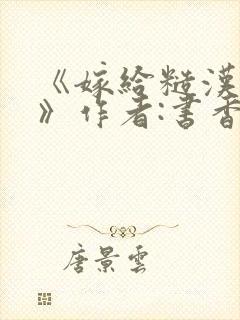 《嫁給糙漢
》作者:書香
唐景雲